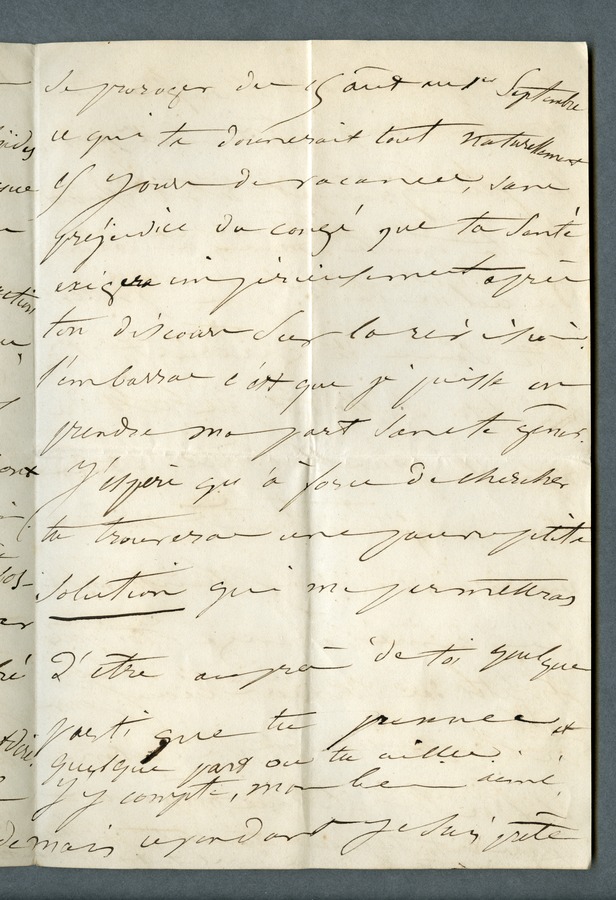 se proroger du 15 août au 1er Septembre
ce qui te donnerait tout naturellement
15 jours de vacances, sans
préjudice du congé que ta santé
exigera impérieusement après
ton discours sur la révision.
l'embarras c'est que je puisse en
prendre ma part sans te gêner.
J'espère qu'à force de chercher
tu trouveras une pauvre petite
solution qui me permettras
D'être auprès de toi quelque
parti que tu prennes et
quelque part où tu ailles.
J'y compte, mon bien aimé,
mais cependant je suis prête